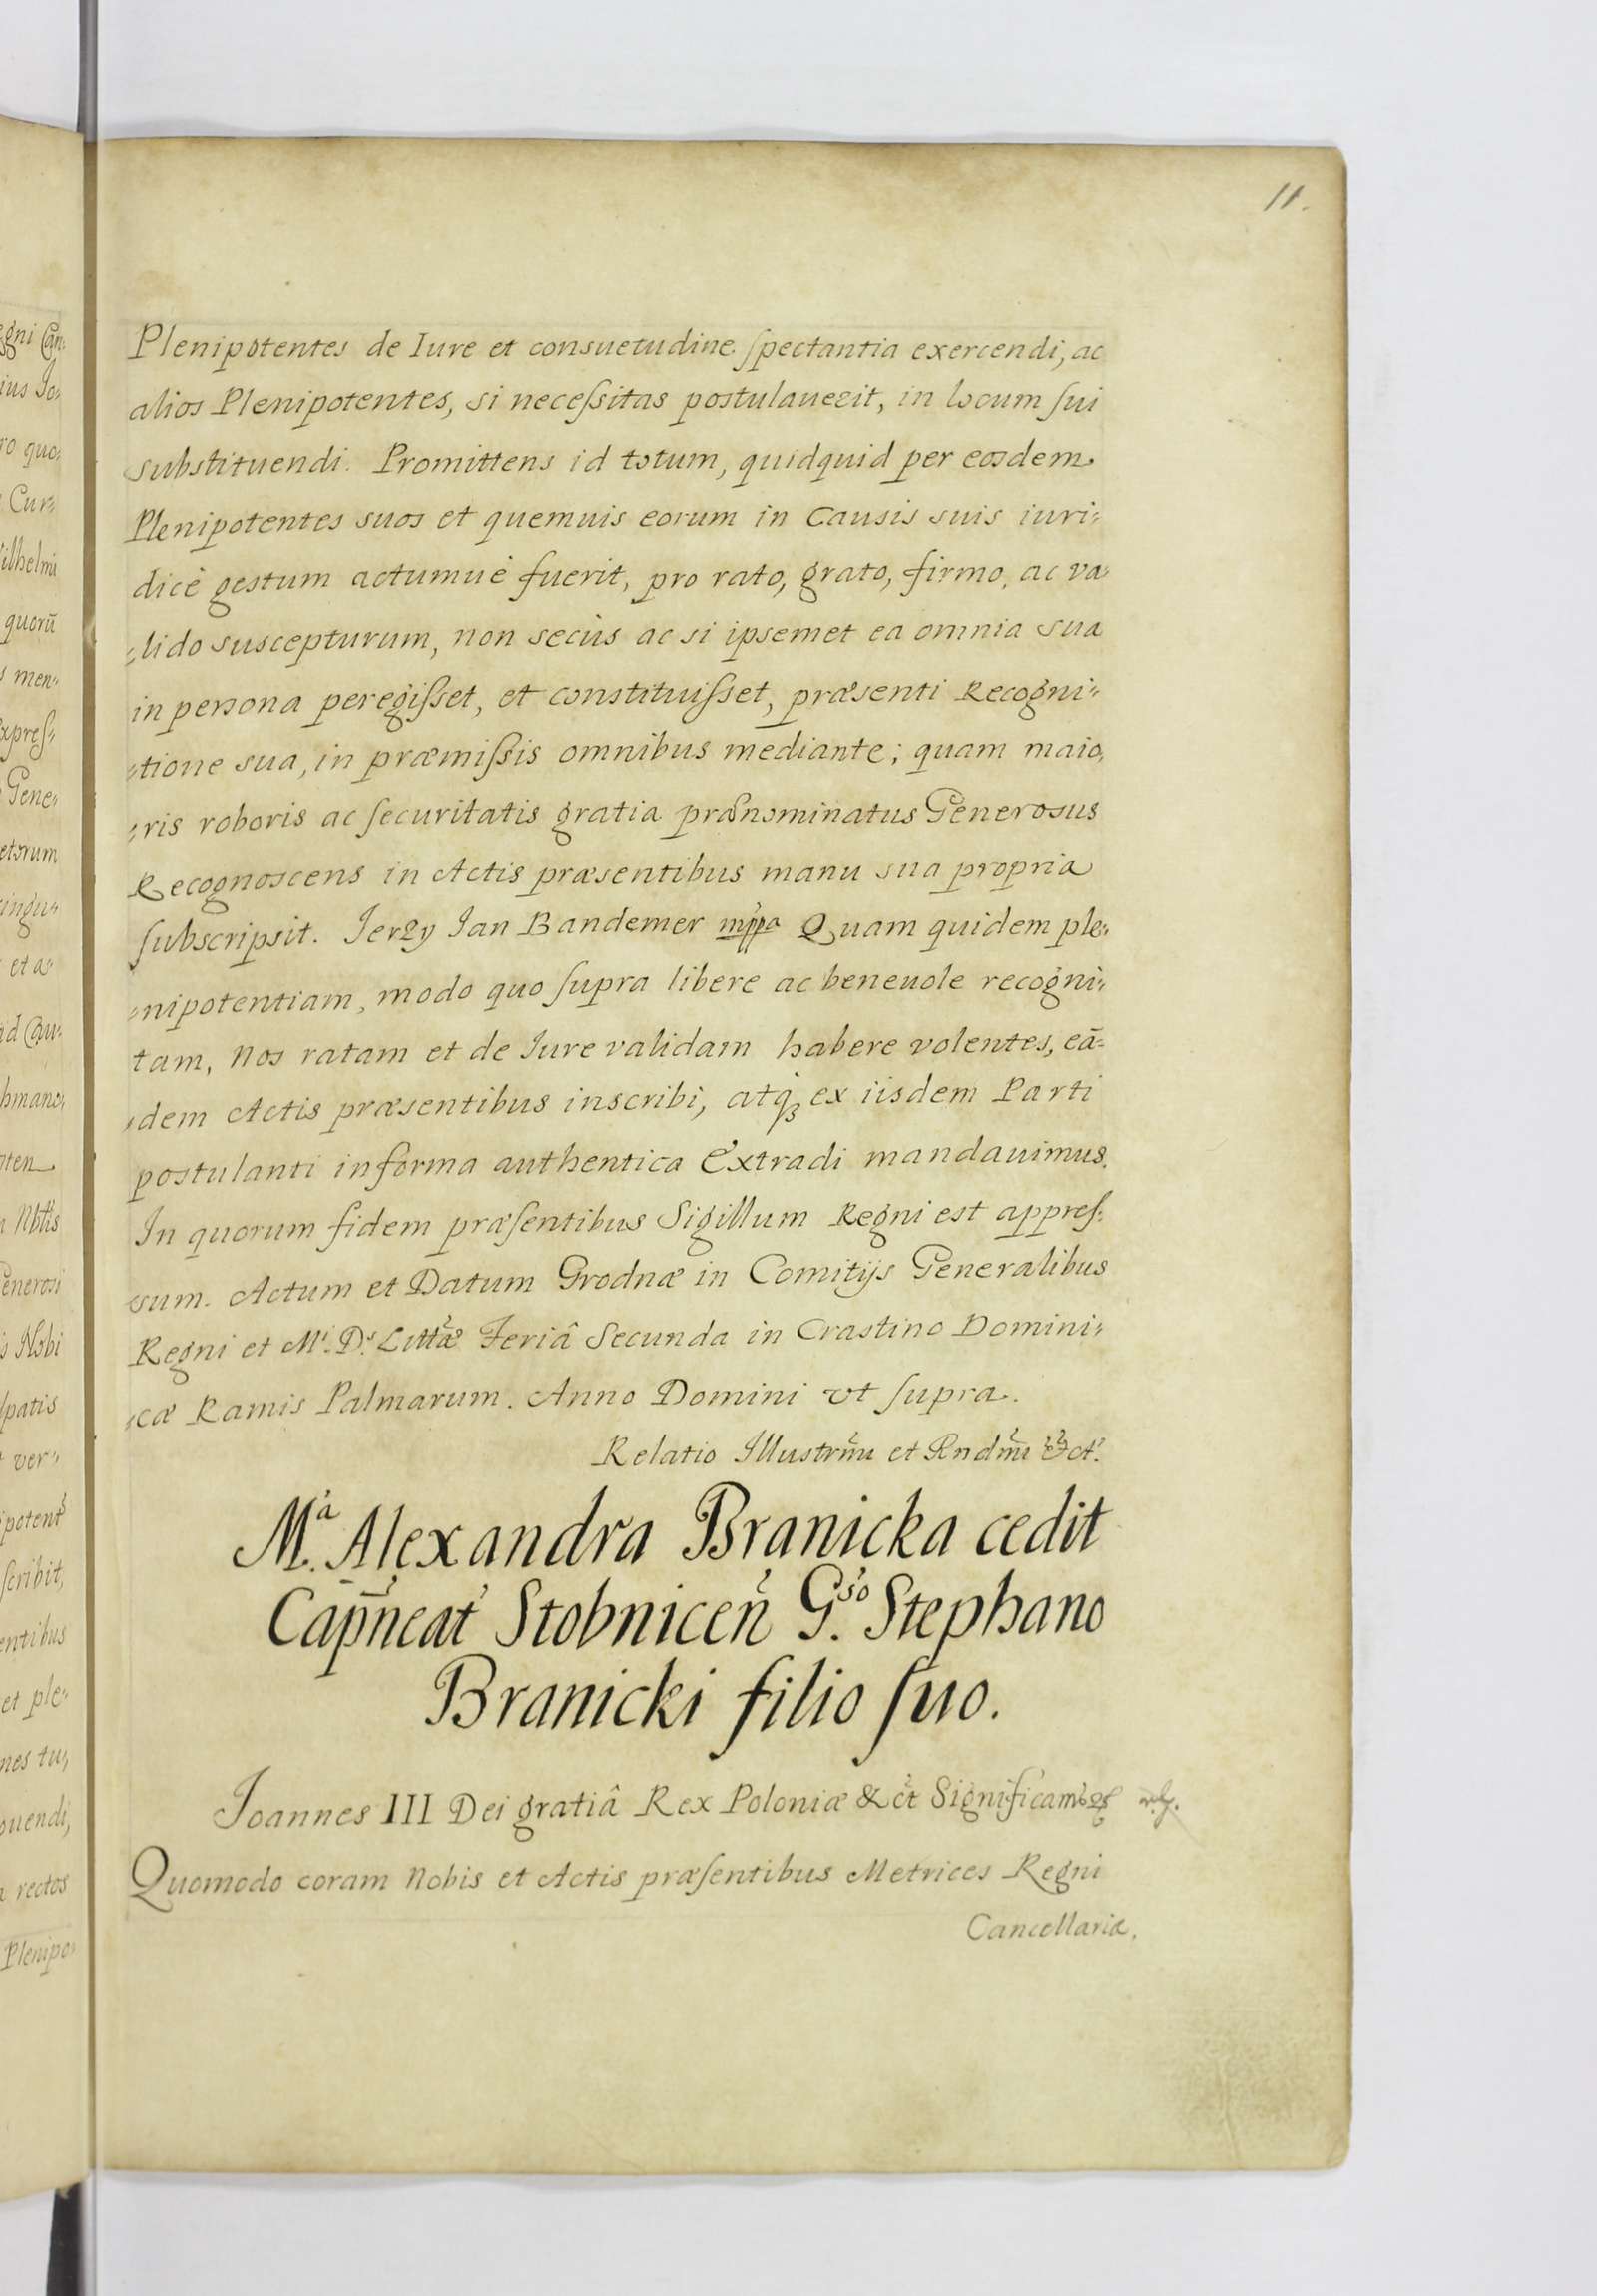 11.
Plenipotentes de Iure et consuetudine ſpectantia exercendi, ac
alios Plenipotentes, si neceſsitas postulauerit, in locum ſui
substituendi. Promittens id totum, quidquid per eosdem
Plenipotentes suos et quemuis eorum in Causis suis iuri„
dicè gestum actumuè fuerit, pro rato, grato, firmo, ac va„
„lido suscepturum, non secùs ac si ipsemet ea omnia sua
in persona peregiſset, et constituiſset, præsenti Recogni„
„tione sua, in præmiſsis omnibus mediante; quam maio„
„ris roboris ac ſecuritatis gratia prænominatus Generosus
Recognoscens in Actis præsentibus manu sua propria
ſubscripsit. Jerzy Jan Bandemer mppa Quam quidem ple„
„nipotentiam, modo quo ſupra libere ac beneuole recogni„
tam, Nos ratam et de Jure validam habere volentes, eā„
„dem Actis præsentibus inscribi, atq3 ex iisdem Parti
postulanti in forma authentica Extradi mandauimus.
In quorum fidem præſentibus Sigillum Regni est appreſ„
sum. Actum et Datum Grodnæ in Comitijs Generalibus
Regni et M. D. Littæ Feriâ Secunda in Crastino Domini„
„cæ Ramis Palmarum. Anno Domini vt ſupra.
Relatio Illustrmi et Rndmi &ct.
M.a Alexandra Branicka cedit
Capneat Stobnicen G.so Stephano
Branicki filio ſuo.
Joannes III Dei gratiâ Rex Poloniæ &ct Significamus
Quomodo coram Nobis et Actis præſentibus Metrices Regni
Cancellariæ.